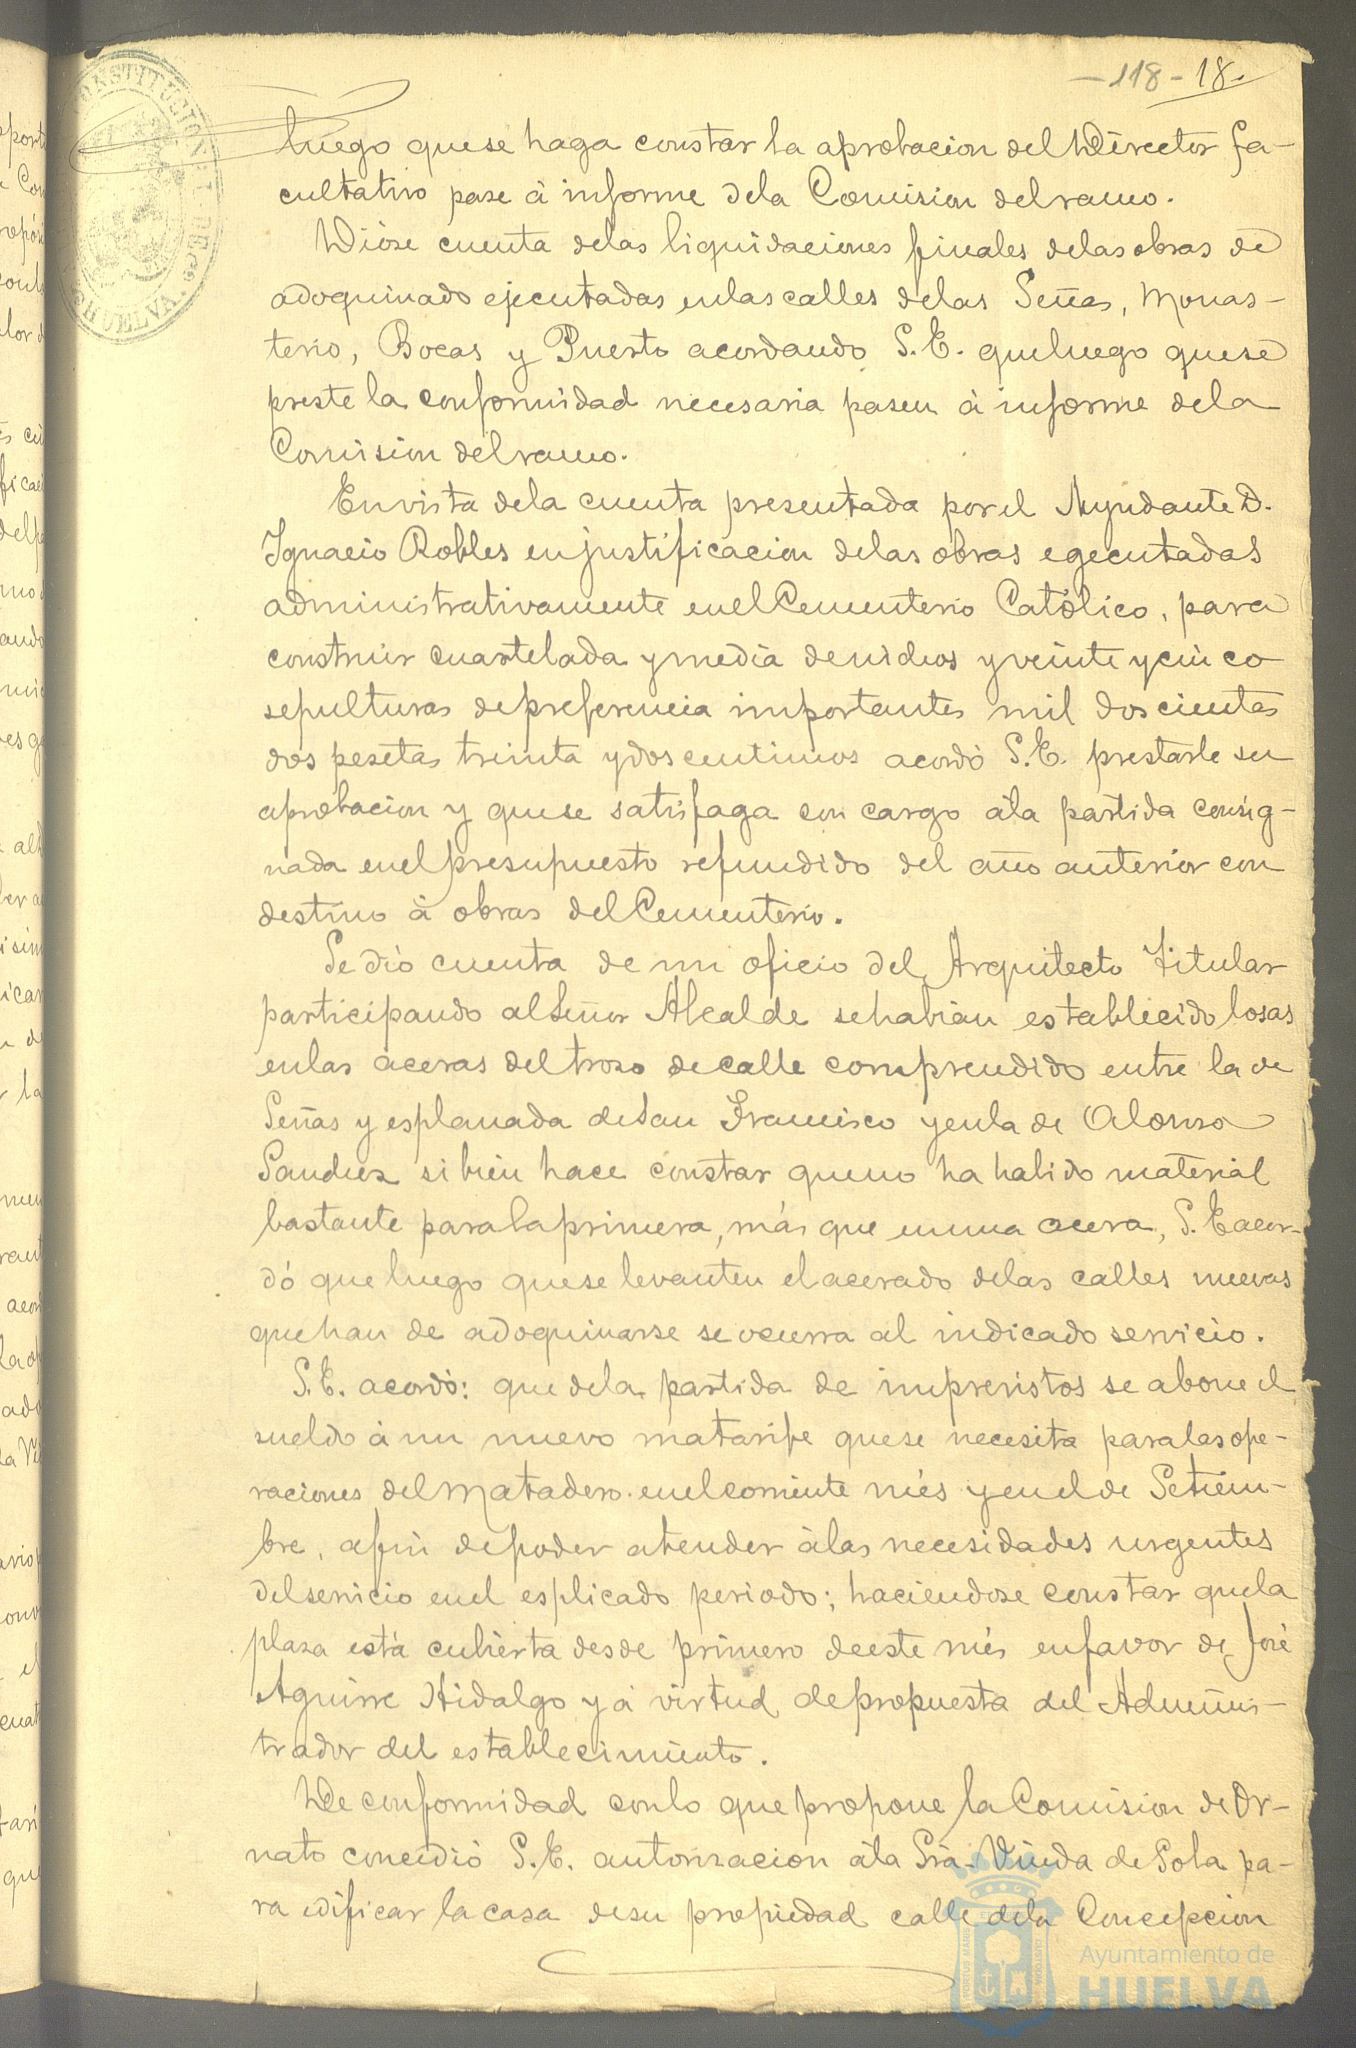 -118- 18.
CONSTITUCIONAL DE
HUELVA.
luego que se haga constar la aprobacion del Director fa-
cultativo pase á informe de la Comision del ramo.
Dióse cuenta de las liquidaciones finales de las obras de
adoquinado ejecutadas en las calles de las Señas, Monas-
terio, Bocas y Puerto acordando S.E. que luego que se
preste la conformidad necesaria pasen á informe de la
Comision del ramo.
En vista de la cuenta presentada por el Ayudante D.
Ignacio Robles en justificacion de las obras egecutadas
administrativamente en el Cementerio Católico, para
construir cuartelada y media de nichos y veinte y cinco
sepulturas de preferencia importantes mil doscientas
dos pesetas treinta y dos centimos acordó S.E. prestarle su
aprobacion y que se satisfaga con cargo á la partida consig-
nada en el presupuesto refundido del año anterior con
destino á obras del Cementerio.
Se dió cuenta de un oficio del Arquitecto Titular
participando al Señor Alcalde se habian establecido losas
en las aceras del trozo de calle comprendido entre la de
Señas y esplanada de San Francisco y en la de Alonso
Sanchez si bien hace constar que no ha habido material
bastante para la primera, más que en una acera, S.E acor-
dó que luego que se levanten el acerado de las calles nuevas
que han de adoquinarse se ocurra al indicado servicio.
S.E. acordó: que de la partida de imprevistos se abone el
sueldo á un nuevo matarife que se necesita para las ope-
raciones del Matadero en el corriente més y en el de Setiem-
bre, afin de poder atender á las necesidades urgentes
del servicio en el esplicado periodo; haciendose constar que la
plaza está cubierta desde primero de este més en favor de José
Aguirre Hidalgo y á virtud de propuesta del Adminis-
trador del establecimiento.
De conformidad con lo que propone la Comision de Or-
nato concedió S.E. autorizacion á la Sra. Viuda de Sola pa-
ra edificar la casa de su propiedad calle de la Concepcion
Ayuntamiento de
HUELVA